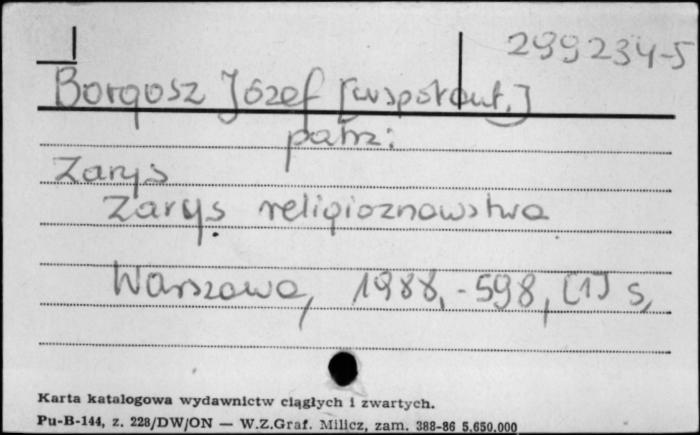 299234-5
Borgosz Józef [współaut.]
patrz:
Zarys
Zarys religioznawstwa
Warszawa, 1988, - 598, [1] s,
Karta katalogowa wydawnictw ciągłych i zwartych.
Pu-B-144, z. 228/DW/ON — W.Z.Graf. Milicz, zam. 388-86 5.650.000